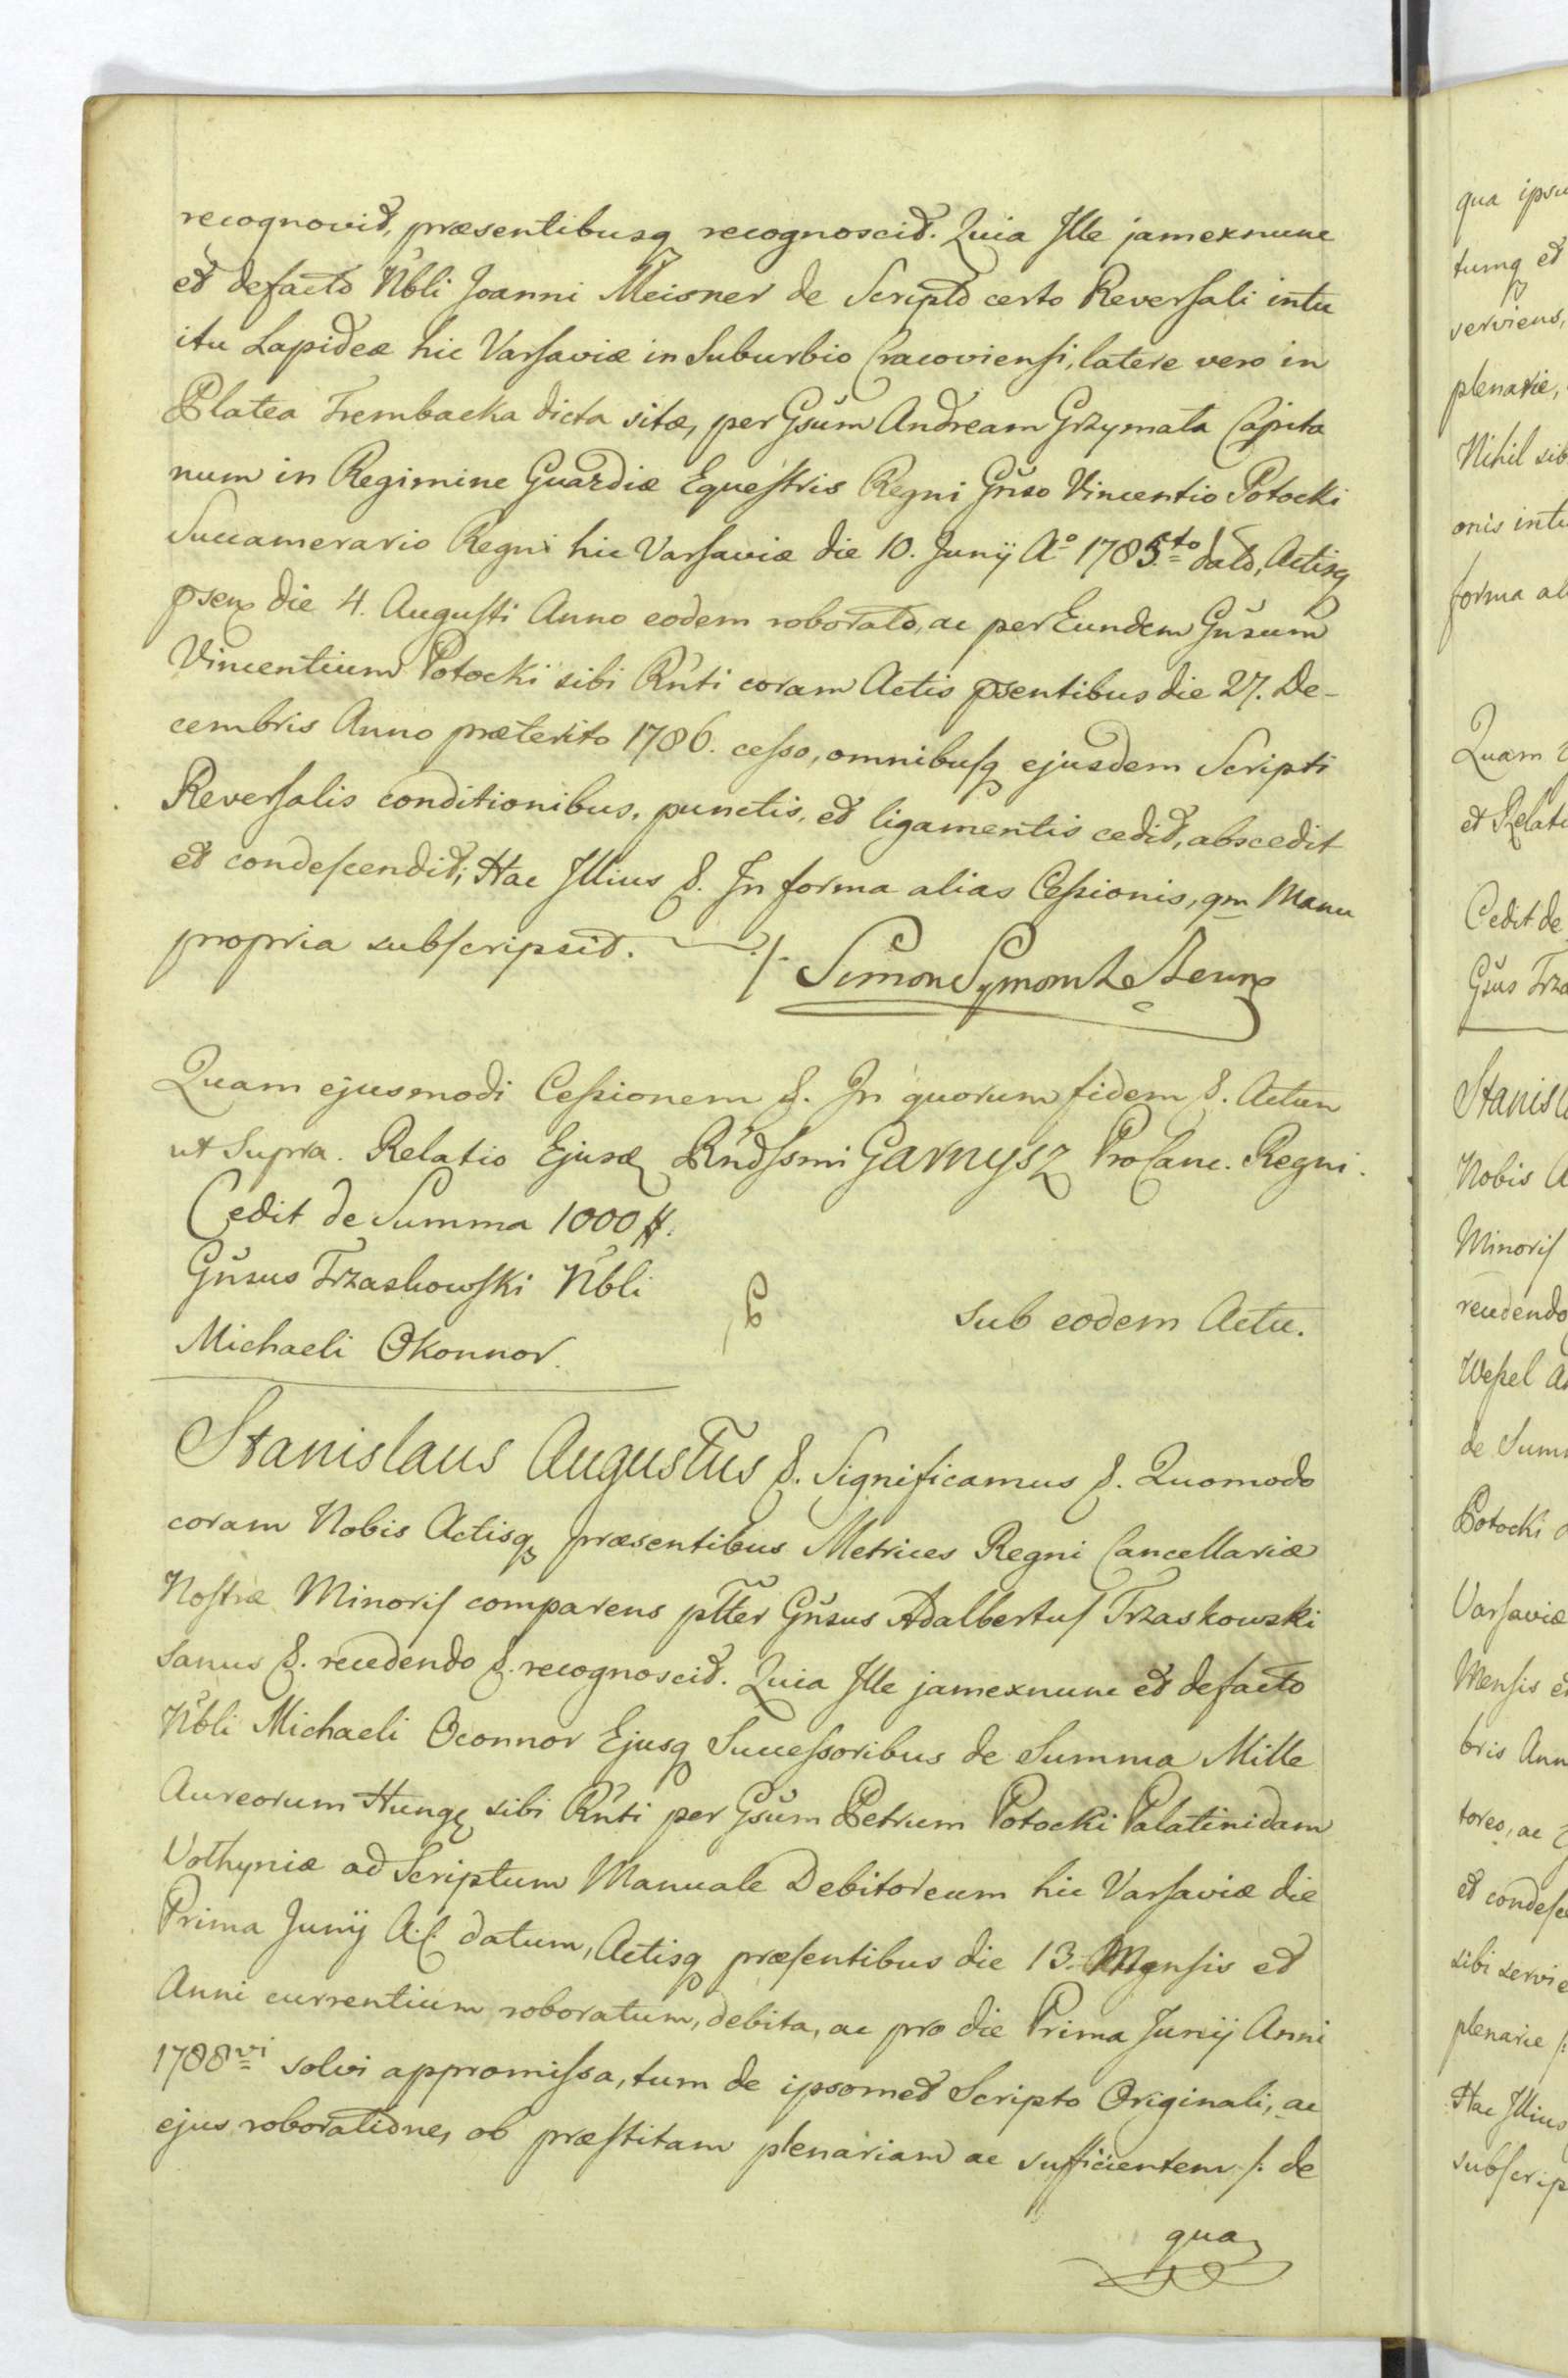 recognovit, præsentibusq recognoscit. Quia Ille jamexnunc
et defacto Nbli Joanni Meisner de Scripto certo Reversali intu
itu Lapideæ hic Varsaviæ in Suburbio Cracoviensi, latere vero in
Platea Trembacka dicta sitæ, per Gsum Andream Grzymała Capita
num in Regimine Guardiæ Equestris Regni Gnso Vincentio Potocki
Succamerario Regni hic Varsaviæ die 10. Junij Aº 1785.to dato, Actisq
psen die 4. Augusti Anno eodem roborato, ac per Eundem Gnsum
Vincentium Potocki sibi Rnti coram Actis psentibus die 27. De-
cembris Anno præterito 1786. cesso, omnibusq ejusdem Scripti
Reversalis conditionibus, punctis, et ligamentis cedit, abscedit
et condescendit; Hac Illius &. In forma alias Cessionis, qm Manu
propria subscripsit. ./. Simon Symon
Quam ejusmodi Cessionem &. In quorum fidem &. Actum
ut Supra. Relatio Ejusd Rndssmi Garnysz ProCanc. Regni.
Cedit de Summa 1000 #.
Gnsus Trzaskowski Nbli
Michaeli Okonnor.
sub eodem Actu.
Stanislaus Augustus &. Significamus &. Quomodo
coram Nobis Actisq præsentibus Metrices Regni Cancellariæ
Nostræ Minoris comparens pltter Gnsus Adalbertus Trzaskowski
sanus &. recedendo &. recognoscit. Quia Ille jamexnunc et defacto
Nbli Michaeli Oconnor Ejusq Successoribus de Summa Mille
Aureorum Hung sibi Rnti per Gsum Petrum Potocki Palatinidam
Vołhyniæ ad Scriptum Manuale Debitoreum hic Varsaviæ die
Prima Junij A.C. datum, Actisq præsentibus die 13. Mensis et
Anni currentium roboratum, debita, ac pro die Prima Junij Anni
1788vi solvi appromissa, tum de ipsomet Scripto Originali, ac
ejus roboratione, ob præstitam plenariam ac sufficientem /: de
qua
qua
tumq et
serviens,
plenarie,
Nihil
onis
forma
Quam
et
Cedit de
Gsus
Nobis
Minoris
recedendo
Wessel
de
Potocki
Varsaviæ
Mensis
bris
ac
et
sibi
plenarie /:
Hac Illius